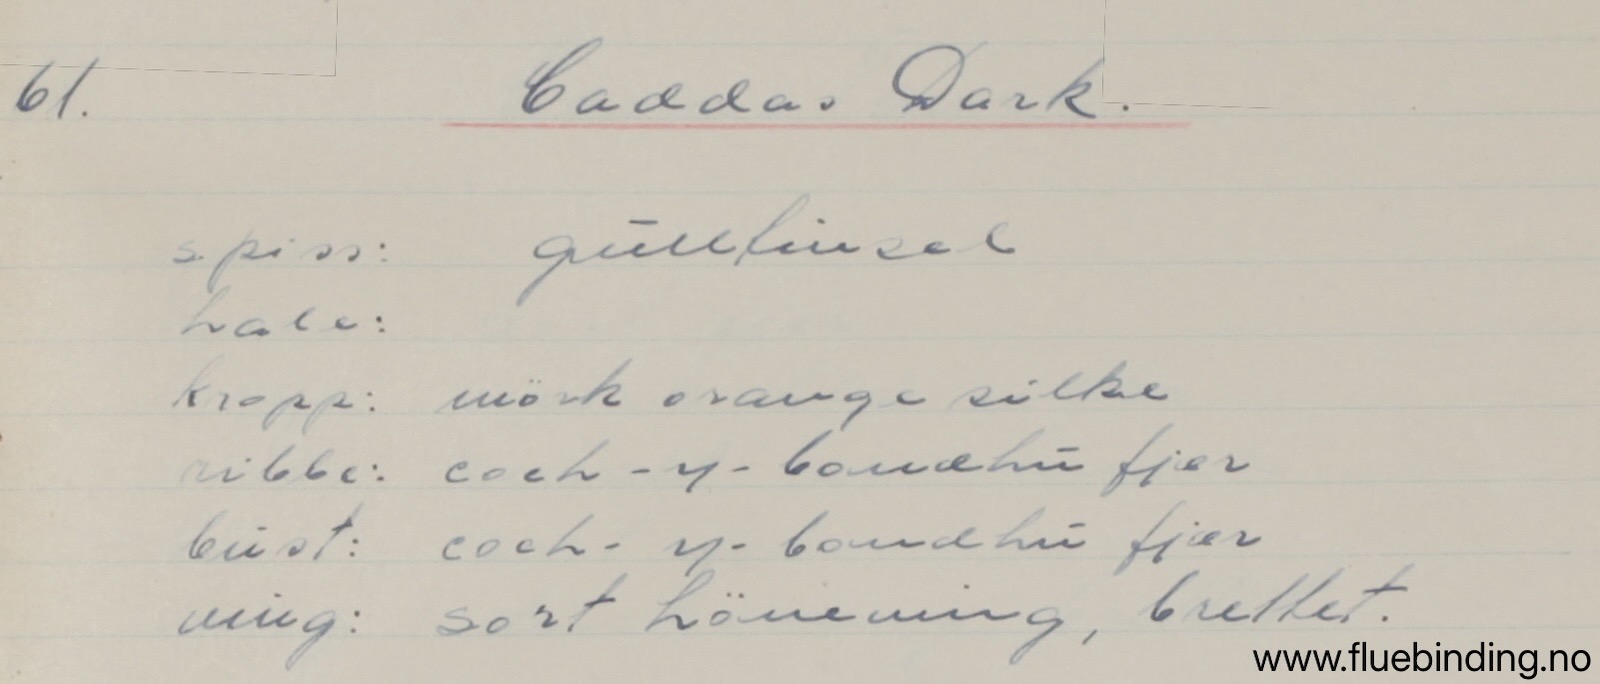 61. Caddas Dark.
spiss: gūlltinsel
hale:
kropp: mörk orange silke
ribbe: coch-y-bondhū fjær
būst: coch-y-bondhū fjær
ving: sort höneving, brettet.
www.fluebinding.no